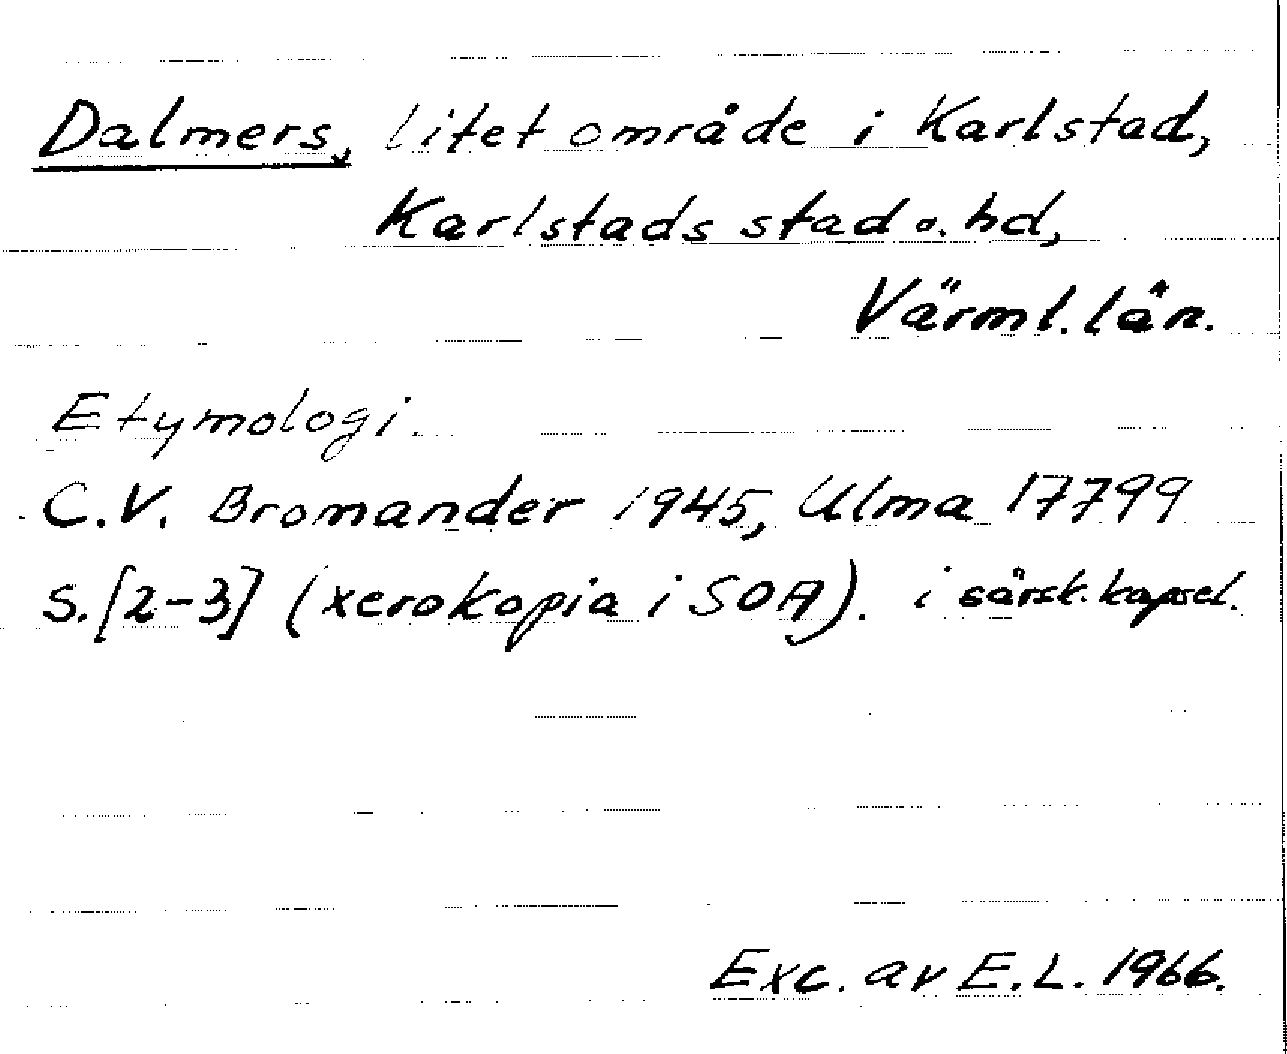 Dalmers, litet område i Karlstad,
Karlstads stad o. hd,
Värml. län.
Etymologi.
C.V. Bromander 1945, Ulma 17799
S. [2-3] (xerokopia i SOA). i särsk. kapsel.
Exc. av E.L. 1966.